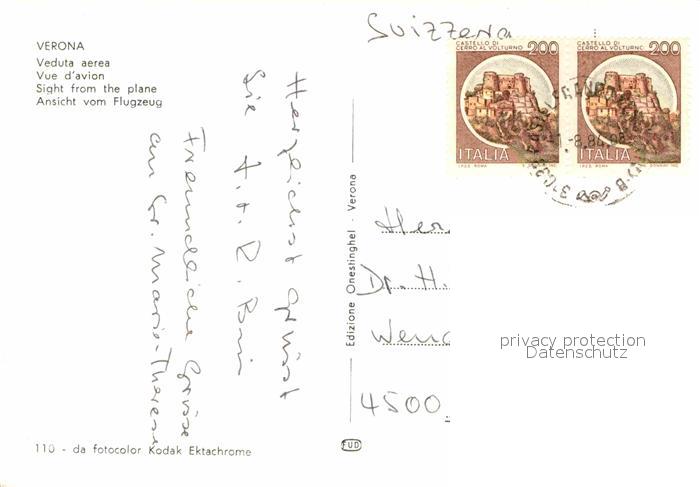 VERONA
Veduta aerea
Vue d'avion
Sight from the plane
Ansicht vom Flugzeug
Herzlichst grüsst
Sie
Freundliche Grüsse
an Fr. Marie-Therese
110 - da fotocolor Kodak Ektachrome
Edizione Onestinghel - Verona
FUD
Svizzera
CASTELLO DI
CERRO AL VOLTURNO 200
ITALIA
CASTELLO DI
CERRO AL VOLTURNO 200
ITALIA
Her
Dr. H.
Weng
4500
privacy protection
Datenschutz